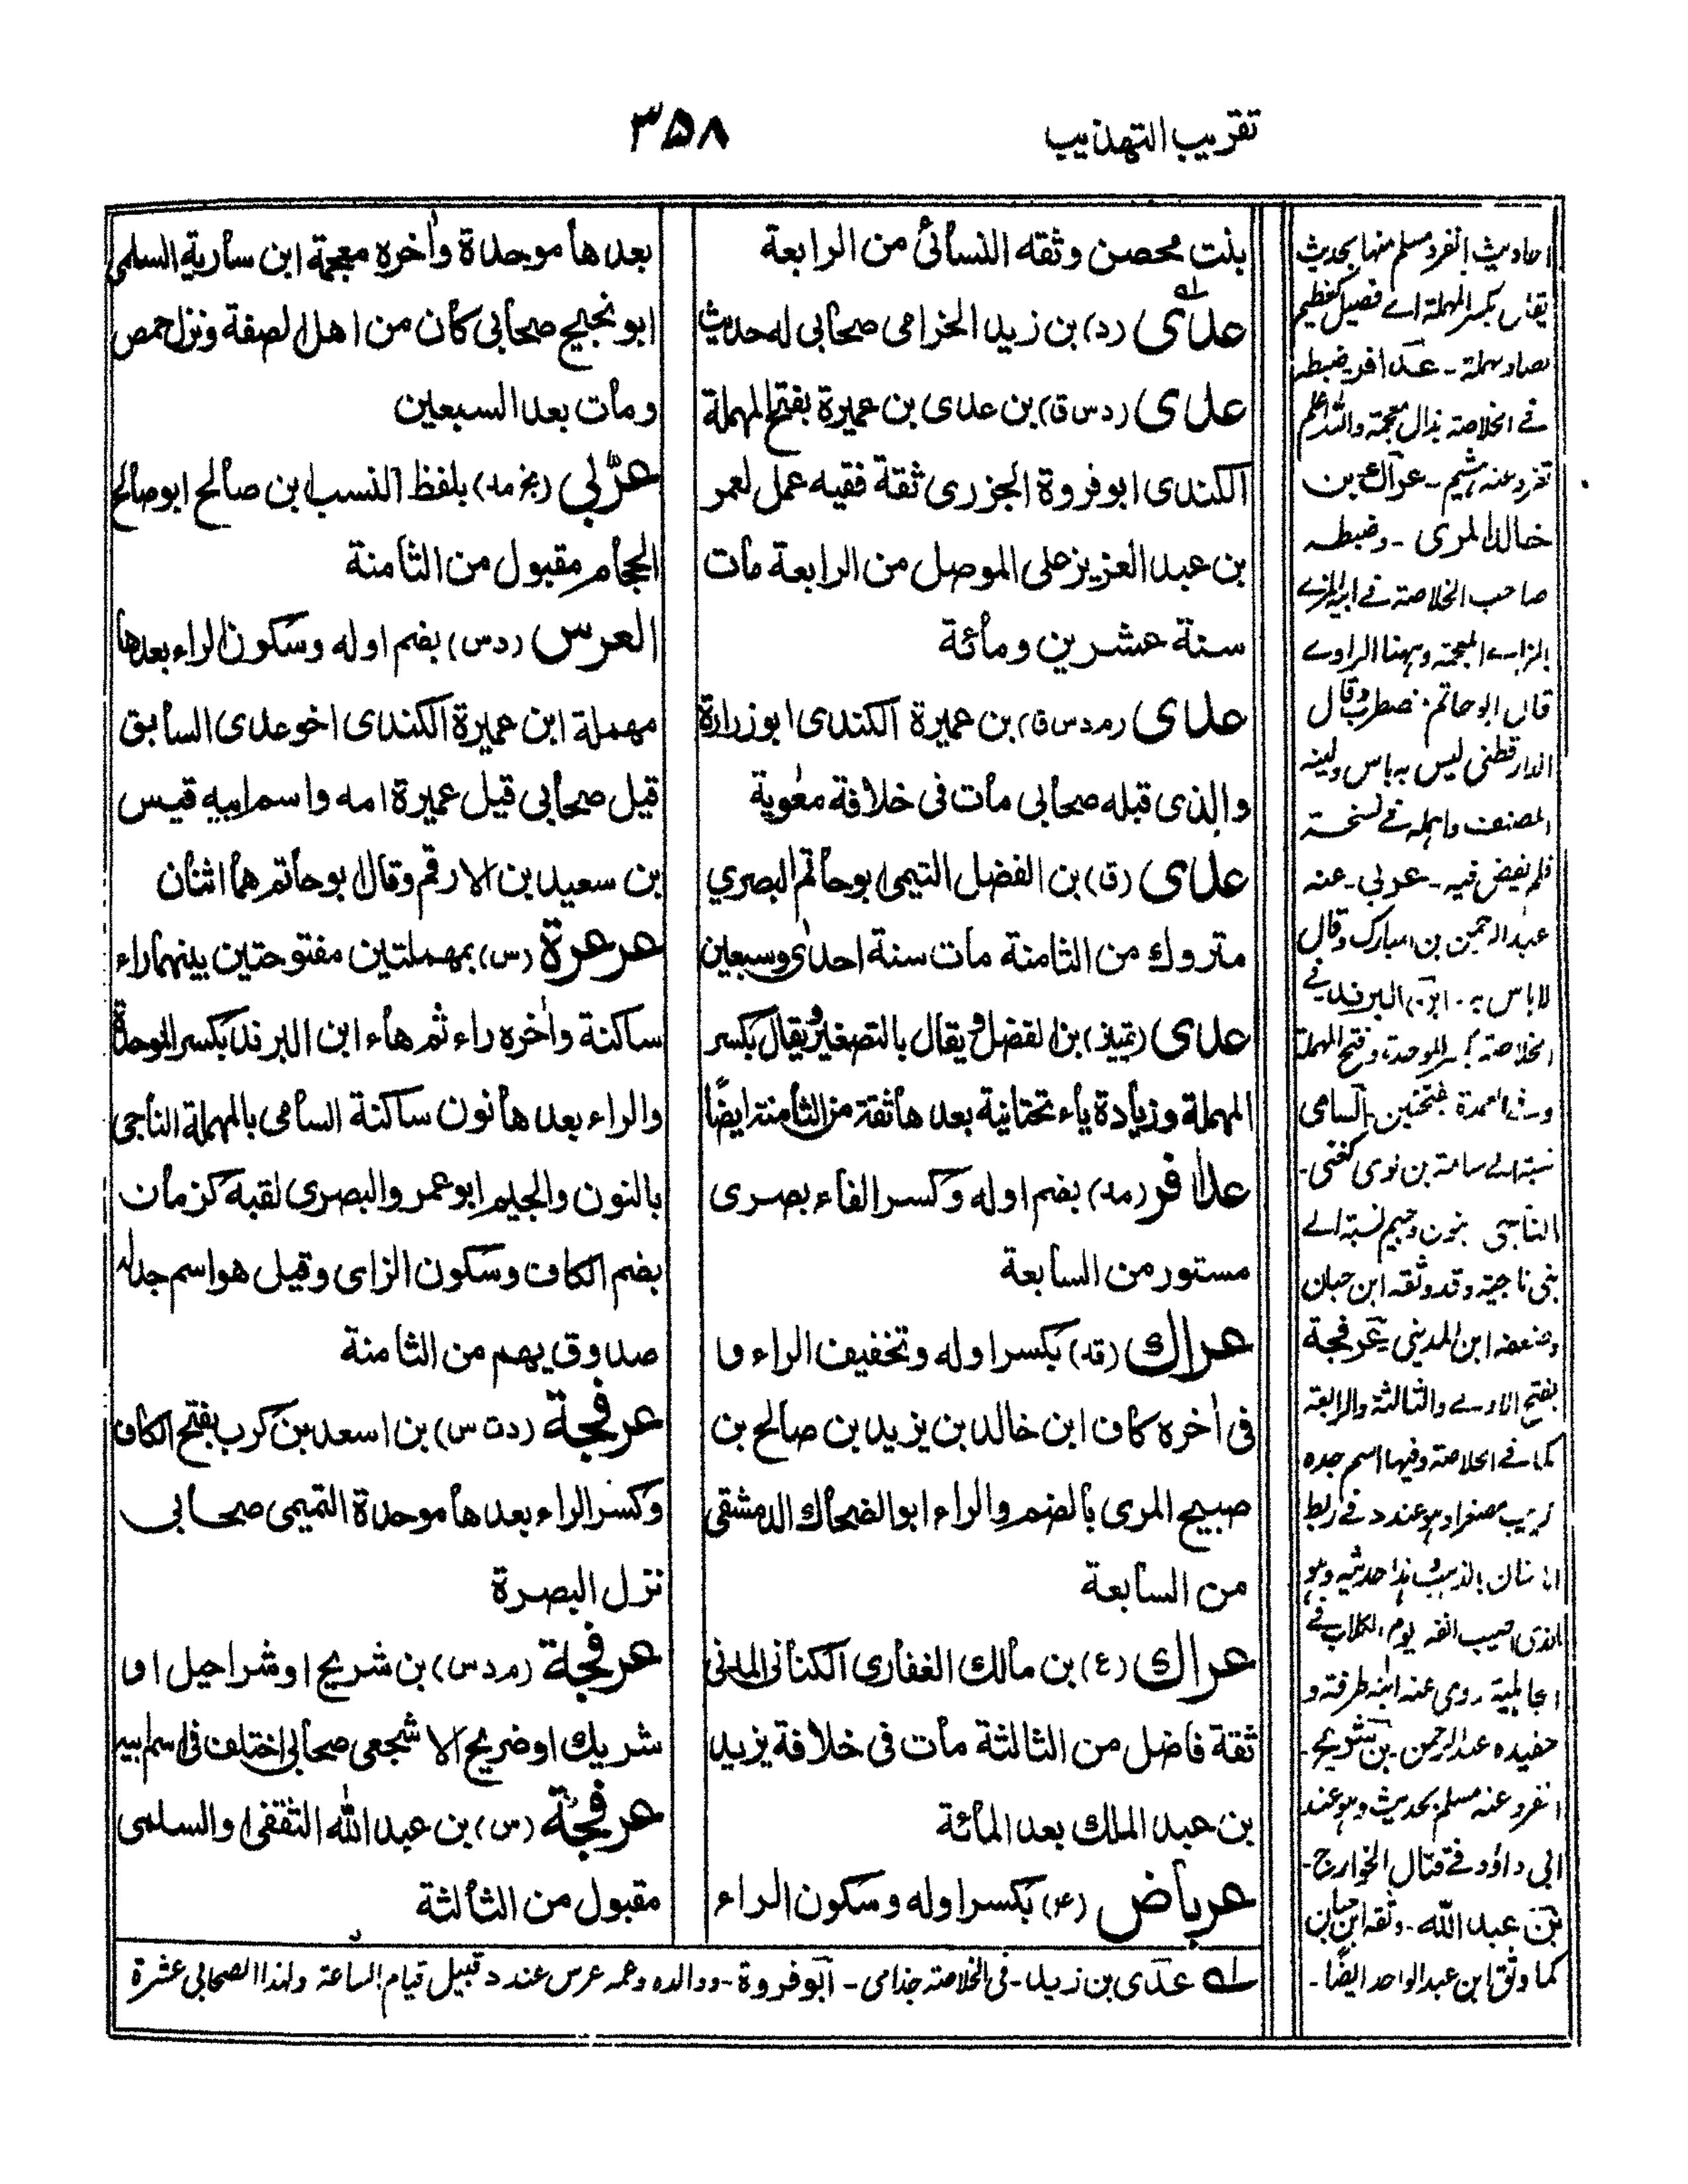 تقریب التہذیب
۳۵۸
بنت محصن وثقه النسائی من الرابعة
عدی (د) بن زید الخزامی صحابی له حدیث
عدی (د س ق) بن عدی بن عمیرة بفتح المهملة
الکندی ابو فروة الجزری ثقة فقیه عمل لعمر
بن عبد العزیز علی الموصل من الرابعة مات
سنة عشرین ومائة
عدی (م د س ق) بن عمیرة الکندی ابو زرارة
والذی قبله صحابی مات فی خلافة معٰویة
عدی (ق) بن الفضل التیمی ابو حاتم البصری
متروک من الثامنة مات سنة احدٰی وسبعین
عدی (تمییز) بن الفضل ویقال بالتصغیر ویقال بکسر
المهملة وزیادة یاء تحتانیة بعدها ثقة من الثامنة ایضًا
عذافر (مد) بضم اوله وکسر الفاء بصری
مستور من السابعة
عراک (قد) بکسر اوله وتخفیف الراء و
فی اٰخره کاف ابن خالد بن یزید بن صالح بن
صبیح المری بالضم والراء ابو الضحاک الدمشقی
من السابعة
عراک (ع) بن مالک الغفاری الکنانی المدنی
ثقة فاضل من الثالثة مات فی خلافة یزید
بن عبد الملک بعد المائة
عرباض (۴) بکسر اوله وسکون الراء
بعدها موحدة واٰخره معجمة ابن ساریة السلمی
ابو نجیح صحابی کان من اهل الصفة ونزل حمص
ومات بعد السبعین
عربی (بخ مد) بلفظ النسب ابن صالح ابو صالح
الحجام مقبول من الثامنة
العرس (د س) بضم اوله وسکون الراء بعدها
مهملة ابن عمیرة الکندی اخو عدی السابق
قیل صحابی قیل عمیرة امه واسم ابیه قیس
بن سعید بن الارقم وقال ابو حاتم هما اثنان
عرعرة (س) بمهملتین مفتوحتین بینهما راء
ساکنة واٰخره راء ثم هاء ابن البرند بکسر الموحدة
والراء بعدها نون ساکنة السامی بالمهملة الناجی
بالنون والجیم ابو عمرو البصری لقبه کزمان
بضم الکاف وسکون الزای وقیل هو اسم جده
صدوق یهم من الثامنة
عرفجة (د ت س) بن اسعد بن کرب بفتح الکاف
وکسر الراء بعدها موحدة التمیمی صحابی
نزل البصرة
عرفجة (م د س) بن شریح او شراحیل او
شریک او ضریح الاشجعی صحابی اختلف فی اسم ابیه
عرفجة (س) بن عبد الله الثقفی او السلمی
مقبول من الثالثة
احادیث انفرد مسلم منها بحدیث
یقال بکسر المهملة اے فصیل کعظیم
بصاد مهملة ـ عذافر ضبطه
فے الخلاصة بذال معجمة واللہ اعلم
تفرد عنه هشیم ـ عراک بن
خالد المری ـ وضبطه
صاحب الخلاصة فے ابیه المزے
بالزاے المعجمة وههنا الراوے
قال ابو حاتم مضطرب وقال
الدارقطنی لیس به باس ولینه
المصنف واهمله فے نسخة
فلم یفیض فیه ـ عربی ـ عنه
عبد الرحمن بن المبارک وقال
لا باس به ـ ابن البرند فے
الخلاصة بکسر الموحدة وفتح المهملة
وفے العمدة بفتحتین ـ السامی
نسبة الے سامة بن لوی کغنی ـ
الناجی بنون وجیم نسبة الے
بنی ناجیة وقد وثقه ابن حبان
وضعفه ابن المدینی ـ عرفجة
بفتح الاولے والثالثة والرابعة
کما فے الخلاصة وفیها اسم جده
کریب مصغرا وهو عند د فے ربط
الاسنان بالذهب هذا حدیثه وهو
الذی اصیب انفه یوم الکلاب فے
الجاهلیة روی عنه ابنه طرفة و
حفیده عبد الرحمن ـ بن شریح ـ
انفرد عنه مسلم بحدیث وهو عند
ابی داؤد فے قتال الخوارج ـ
بن عبد اللہ ـ وثقه ابن حبان
کما وثق ابن عبد الواحد ایضًا ـ
له عدی بن زید ـ فی الخلاصة جذامی ـ ابو فروة ـ ووالده وعمه عرس عند د قبیل قیام الساعة ولهذا الصحابی عشرة